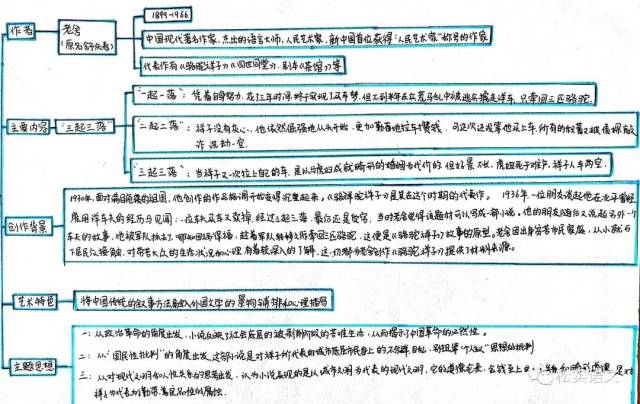 作者
老舍
(原名舒庆春)
1899-1966
中国现代著名作家，杰出的语言大师、人民艺术家，新中国首位获得"人民艺术家"称号的作家
代表作有《骆驼祥子》《四世同堂》、剧本《茶馆》等
主要内容
"三起三落"
"一起一落"：凭着自身努力，花了三年时间，终于实现了买车梦，但不到半年在兵荒马乱中被逃兵掳走洋车，只牵回三匹骆驼
"二起二落"：祥子没有灰心，他依然倔强地从头开始，更加勤奋地拉车攒钱，可这次还没等他买上车，所有的积蓄又被侦探敲
诈，洗劫一空
"三起三落"：当祥子又一次拉上自己的车，是以与虎妞成就畸形的婚姻为代价的，但好景不长，虎妞死于难产，祥子人车两空
创作背景
1930年，面对满目疮痍的祖国，他创作的作品格调开始变得沉重起来。《骆驼祥子》是其在这个时期的代表作。1936年，一位朋友谈起他在北平曾经
雇用洋车夫的经历与见闻：一位车夫买车又卖掉，经过三起三落，最后还是受穷，当时老舍觉得该题材可以写成一部小说。他的朋友随后又说起另外一个
车夫的故事，他被军队抓去了，哪知因祸得福，趁着军队转移之际牵回三匹骆驼，这便是《骆驼祥子》故事的原型。老舍因出身贫苦市民家庭，从小就与
下层民众接触，对劳苦大众的生活状况和心理有着较深入的了解，这一切都为老舍创作《骆驼祥子》提供了材料来源。
艺术特色
将中国传统的叙事方法融入外国文学的景物铺排和心理描写
主题思想
一：从政治革命的角度出发，小说反映了社会底层的被剥削阶级的苦难生活，从而揭示了中国革命的必然性。
二：从"国民性批判"的角度出发，这部小说是对祥子所代表的城市底层市民身上的
三：从对现代文明和人性关系的思考出发，认为小说表现的是以城市文明为代表的现代文明，它的
松实语文